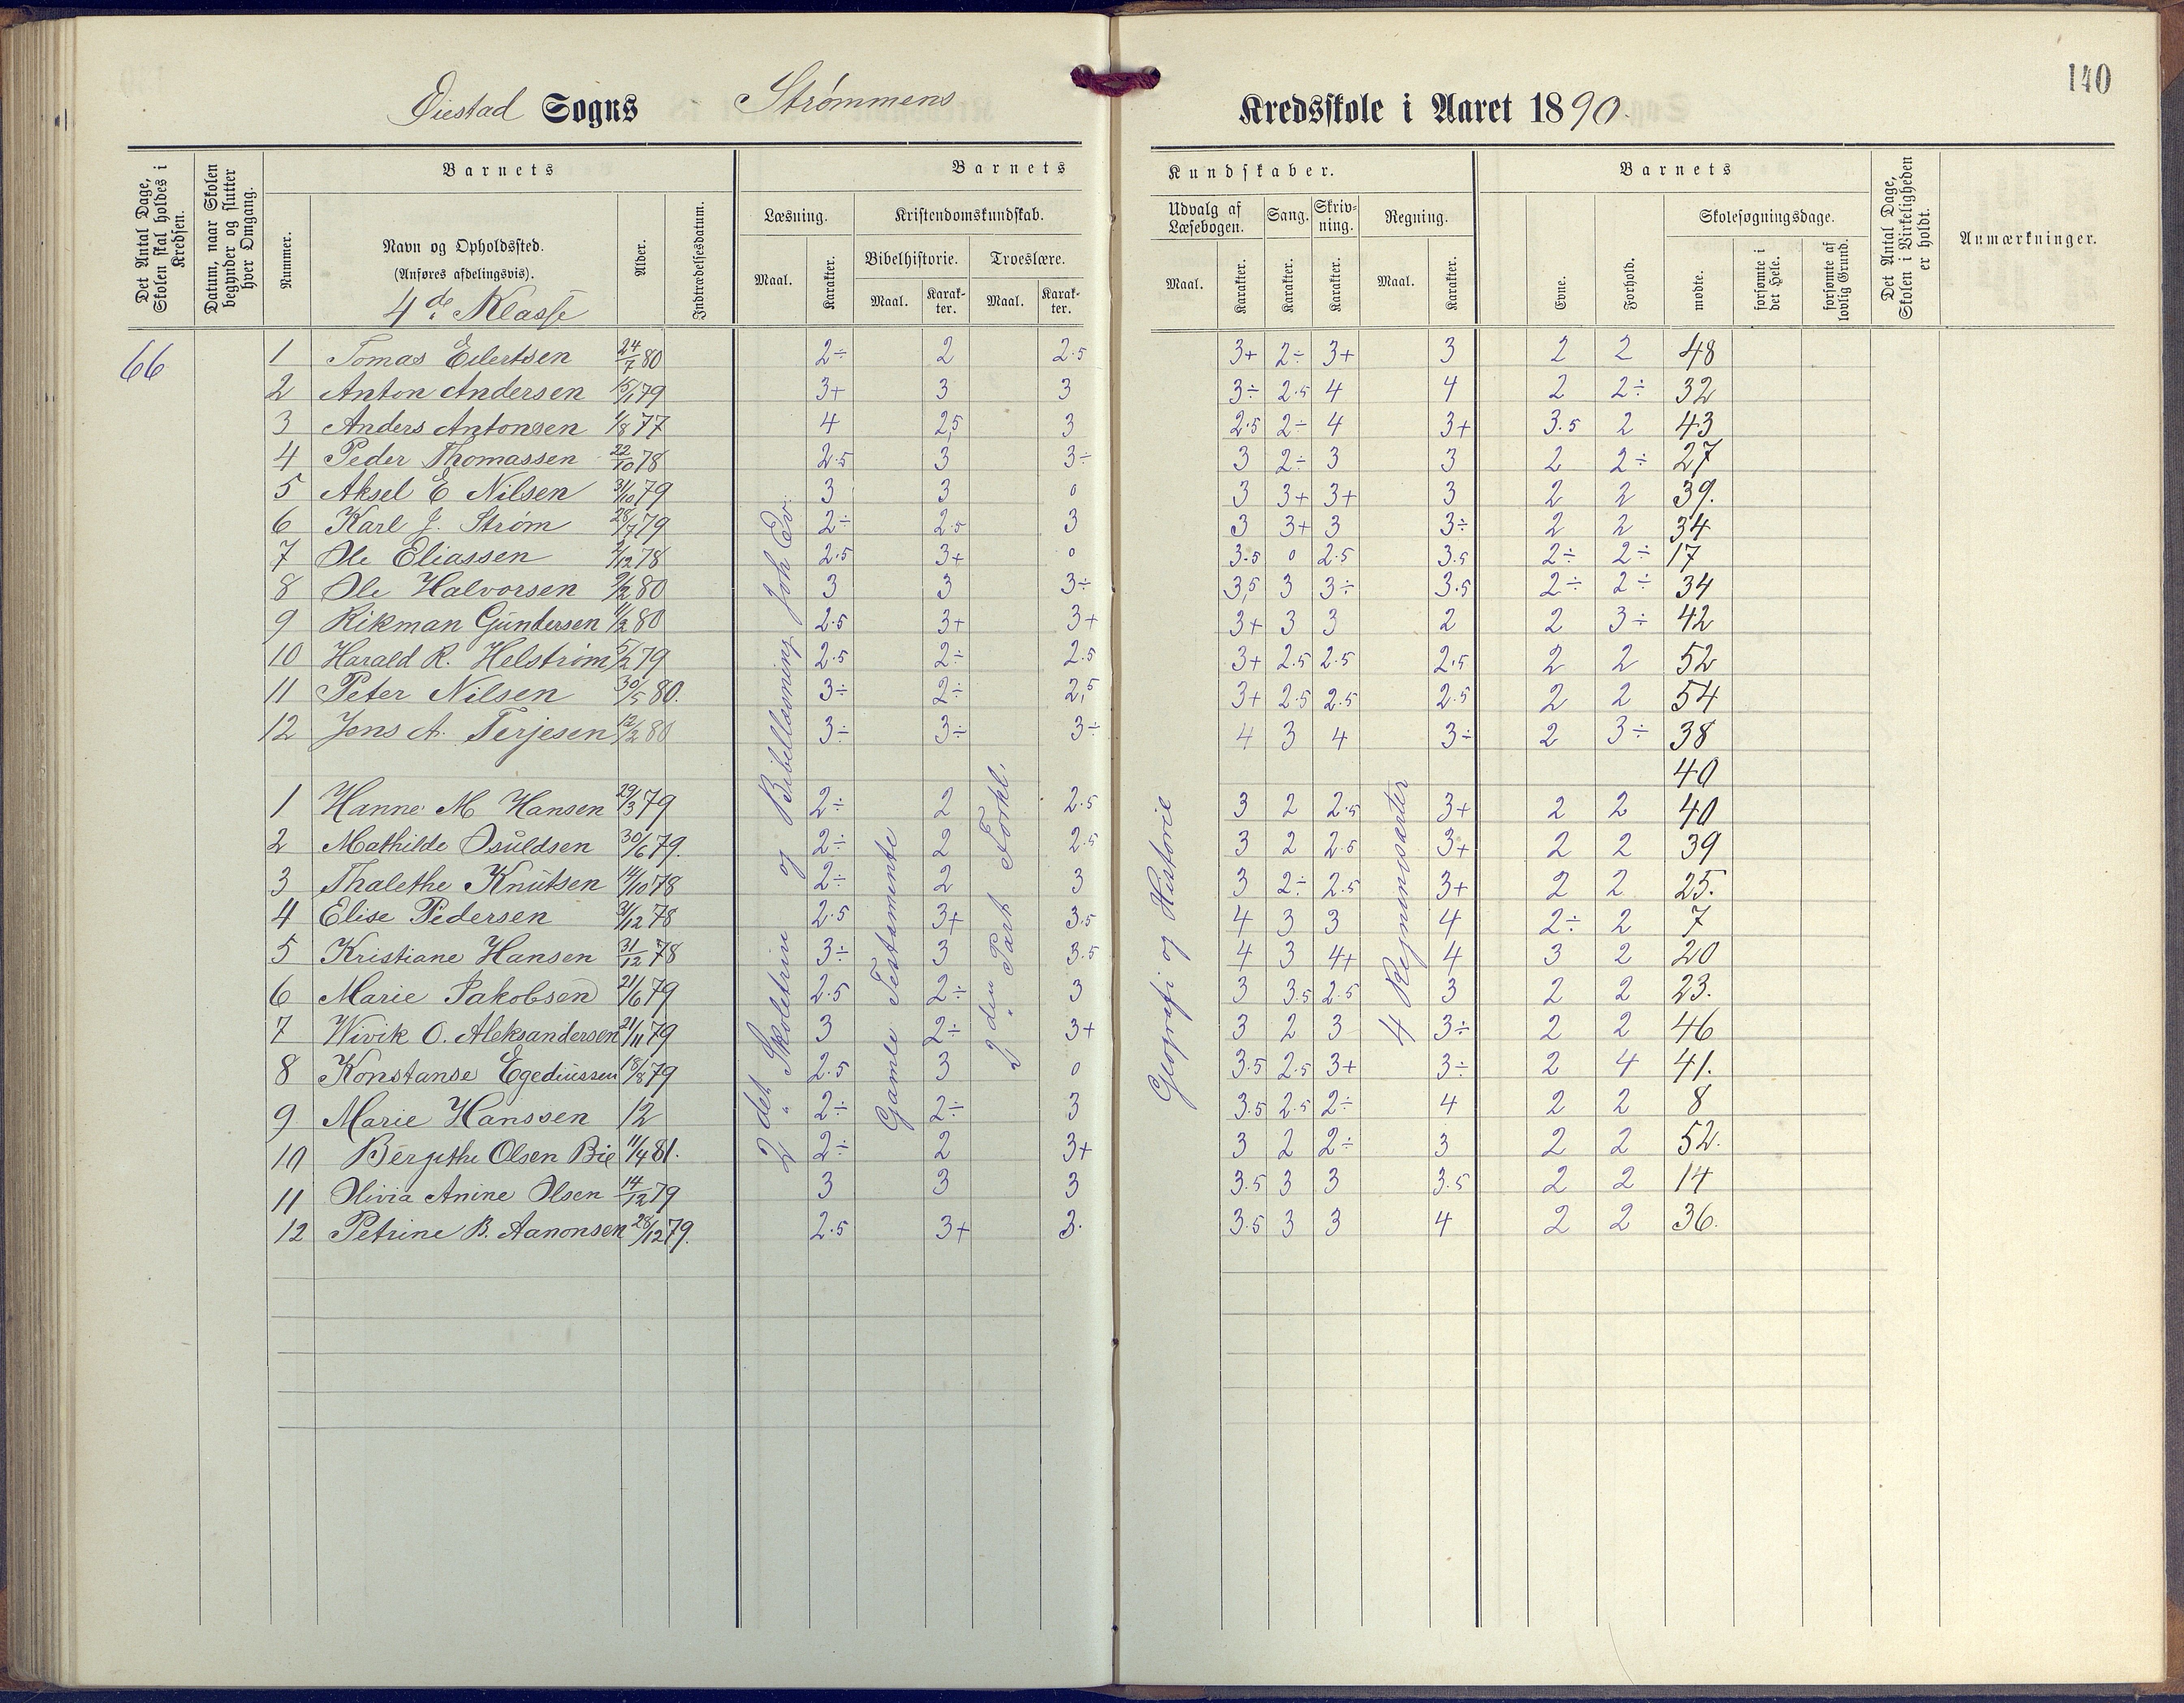 140
Øiestad Sogns Strømmens Kredsskole i Aaret 1890.
Det Antal Dage, Skolen skal holdes i Kredsen.
Datum, naar Skolen begynder og slutter hver Omgang.
Barnets
Nummer.
Navn og Opholdssted.
(Anføres afdelingsvis).
4de Klasse
Alder.
Indtrædelsesdatum.
Barnets Kundskaber.
Læsning.
Maal.
Karakter.
Kristendomskundskab.
Bibelhistorie.
Maal.
Karakter.
Troeslære.
Maal.
Karakter.
Udvalg af Læsebogen.
Maal.
Karakter.
Sang.
Karakter.
Skrivning.
Karakter.
Regning.
Maal.
Karakter.
Barnets
Evne.
Forhold.
Skolesøgningsdage.
mødte.
forsømte i det Hele.
forsømte af lovlig Grund.
Det Antal Dage, Skolen i Virkeligheden er holdt.
Anmærkninger.
66
1 Tomas Eilertsen 24/7 80 2÷ 2 2.5 3+ 2÷ 3+ 3 2 2 48
2 Anton Andersen 15/1 79 3+ 3 3 3÷ 2.5 4 4 2 2÷ 32
3 Anders Antonsen 1/8 77 4 2,5 3 2.5 2÷ 4 3+ 3.5 2 43
4 Peder Thomassen 22/10 78 2.5 3 3÷ 3 2÷ 3 3 2 2÷ 27
5 Aksel E Nilsen 31/10 79 3 3 0 3 3+ 3+ 3 2 2 39.
6 Karl J. Strøm 28/7 79 2÷ 2.5 3 3 3+ 3 3÷ 2 2 34
7 Ole Eliassen 2/12 78 2.5 3+ 0 3.5 0 2.5 3.5 2÷ 2÷ 17
8 Ole Halvorsen 9/2 80 3 3 3÷ 3,5 3 3÷ 3.5 2÷ 2÷ 34
9 Rikman Gundersen 11/2 80 2.5 3+ 3+ 3+ 3 3 2 2 3÷ 42
10 Harald R. Helstrøm 5/2 79 2.5 2÷ 2.5 3+ 2.5 2.5 2.5 2 2 52
11 Peter Nilsen 30/5 80. 3÷ 2÷ 2,5 3+ 2.5 2.5 2.5 2 2 54
12 Jens A. Terjesen 12/2 80 3÷ 3÷ 3÷ 4 3 4 3÷ 2 3÷ 38
40
1 Hanne M Hansen 29/3 79 2÷ 2 2.5 3 2 2.5 3+ 2 2 40
2 Mathilde Osuldsen 30/6 79. 2÷ 2 2.5 3 2 2.5 3+ 2 2 39
3 Thalethe Knutsen 14/10 78 2÷ 2 3 3 2÷ 2.5 3+ 2 2 25.
4 Elise Pedersen 31/12 78 2.5 3+ 3.5 4 3 3 4 2÷ 2 7
5 Kristiane Hansen 31/12 78 3÷ 3 3.5 4 3 4+ 4 3 2 20
6 Marie Jakobsen 21/6 79 2.5 2÷ 3 3 3.5 2.5 3 2 2 23.
7 Wivik O. Aleksandersen 21/11 79 3 2÷ 3+ 3 2 3 3÷ 2 2 46
8 Konstanse Egediussen 18/8 79 2.5 3 0 3.5 2.5 3+ 3÷ 2 4 41.
9 Marie Hanssen 12 2÷ 2÷ 3 3.5 2.5 2÷ 4 2 2 8
10 Bergithe Olsen Bie 11/4 81. 2÷ 2 3+ 3 2 2÷ 3 2 2 52.
11 Olivia Anine Olsen 14/12 79 3 3 3 3.5 3 3 3.5 2 2 14
12 Petrine B. Aanonsen 28/12 79. 2.5 3+ 3. 3.5 3 3 4 2 2 36.
2det Skoletrin og Bibellæsning Joh Ev.
Gamle Testamente
2den Part Forkl.
Geografi og Historie
4 Regningsarter